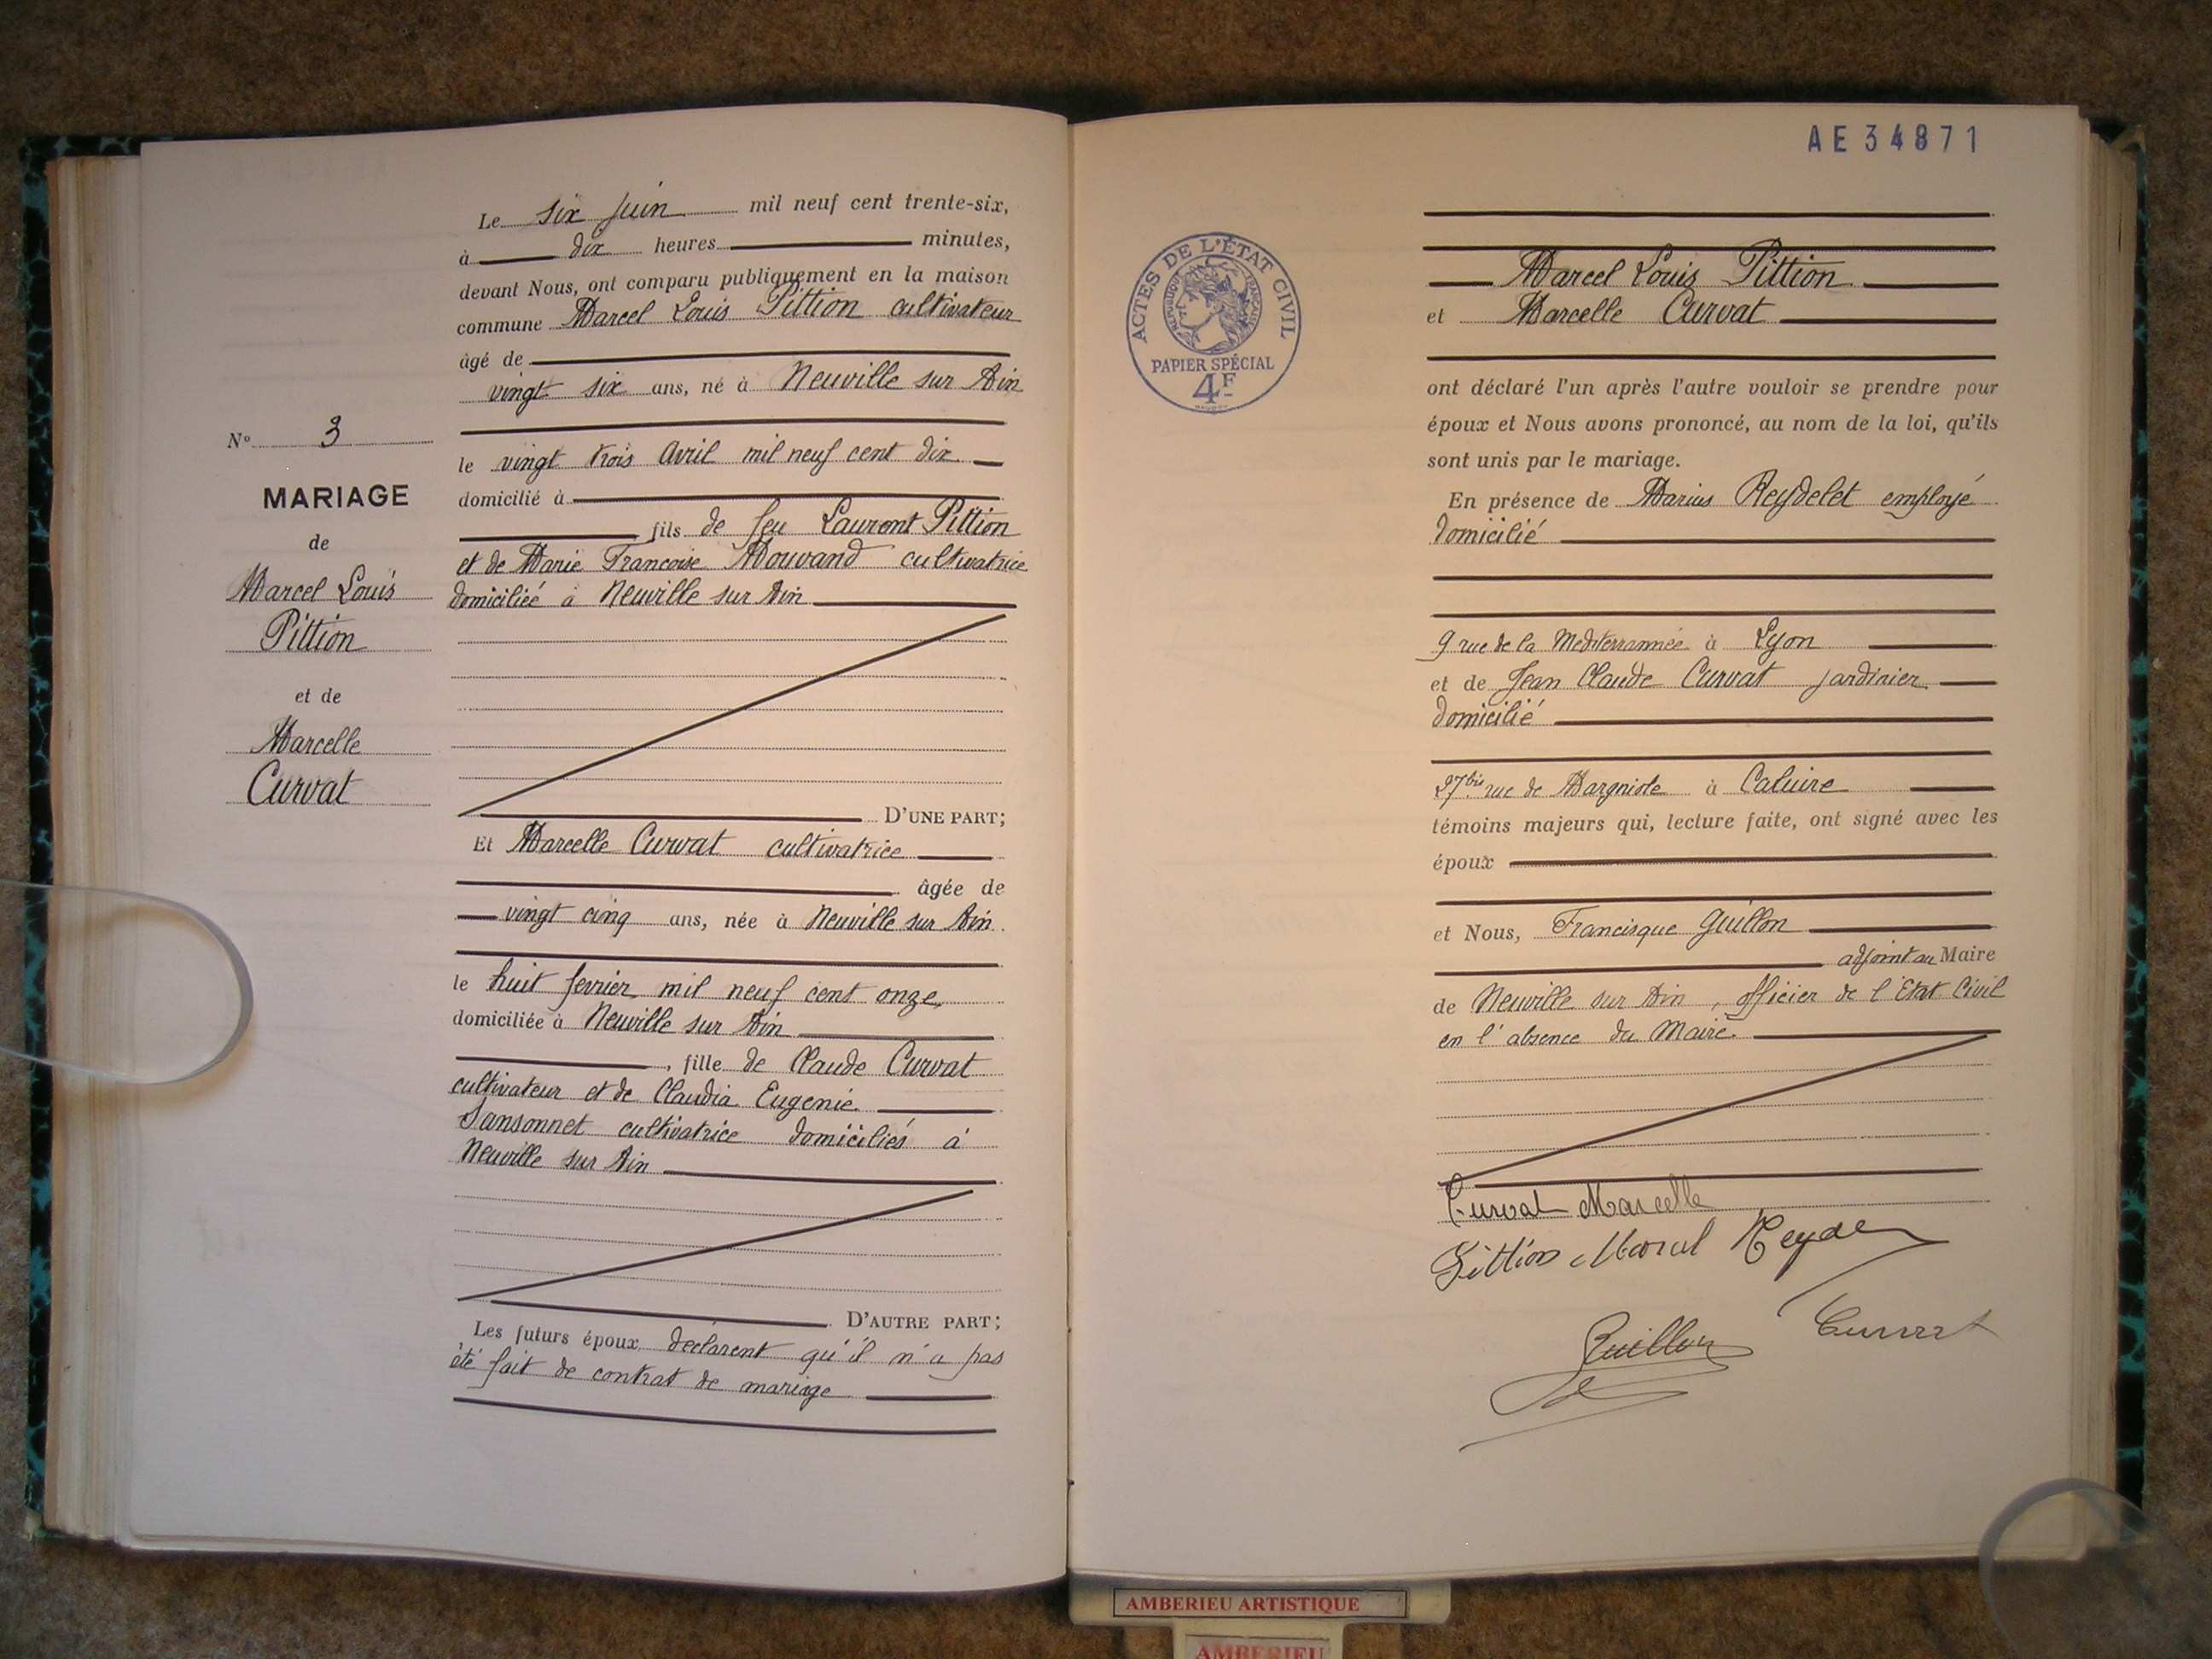 N° 3
MARIAGE
de
Marcel Louis
Pittion
et de
Marcelle
Curvat
Le six juin mil neuf cent trente-six,
à dix heures minutes,
devant Nous, ont comparu publiquement en la maison
commune Marcel Louis Pittion cultivateur
âgé de
vingt six ans, né à Neuville sur Ain
le vingt trois avril mil neuf cent dix
domicilié à
fils de feu Laurent Pittion
et de Marie Françoise Mouvand cultivatrice
domiciliée à Neuville sur Ain
D'UNE PART;
Et Marcelle Curvat cultivatrice
âgée de
vingt cinq ans, née à Neuville sur Ain
le huit fevrier mil neuf cent onze
domiciliée à Neuville sur Ain
, fille de Claude Curvat
cultivateur et de Claudia Eugenie
Sansonnet cultivatrice domiciliés à
Neuville sur Ain
D'AUTRE PART;
Les futurs époux déclarent qu'il n'a pas
été fait de contrat de mariage
AE34871
ACTES DE L'ÉTAT CIVIL
RÉPUBLIQUE FRANÇAISE
PAPIER SPÉCIAL
4F
Marcel Louis Pittion
et Marcelle Curvat
ont déclaré l'un après l'autre vouloir se prendre pour
époux et Nous avons prononcé, au nom de la loi, qu'ils
sont unis par le mariage.
En présence de Marius Reydelet employé
domicilié
9 rue de la Mediterrannée à Lyon
et de Jean Claude Curvat jardinier
domicilié
27 bis rue de Margniole à Caluire
témoins majeurs qui, lecture faite, ont signé avec les
époux
et Nous, Francisque Guillon
adjoint au Maire
de Neuville sur Ain, officier de l'Etat Civil
en l'absence du Maire.
Curvat Marcelle
Pittion Marcel
Guillon Curvat
AMBERIEU ARTISTIQUE
AMBERIEU